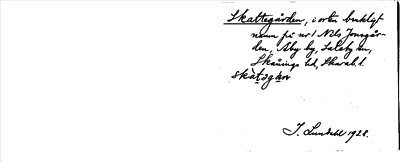 Skattegården, i orten brukligt
namn på nr 1 Nils Jonsgår-
den, Åby by, Saleby sn,
Skånings hd, Skarab. l.
skat
J. Lundahl 1928.